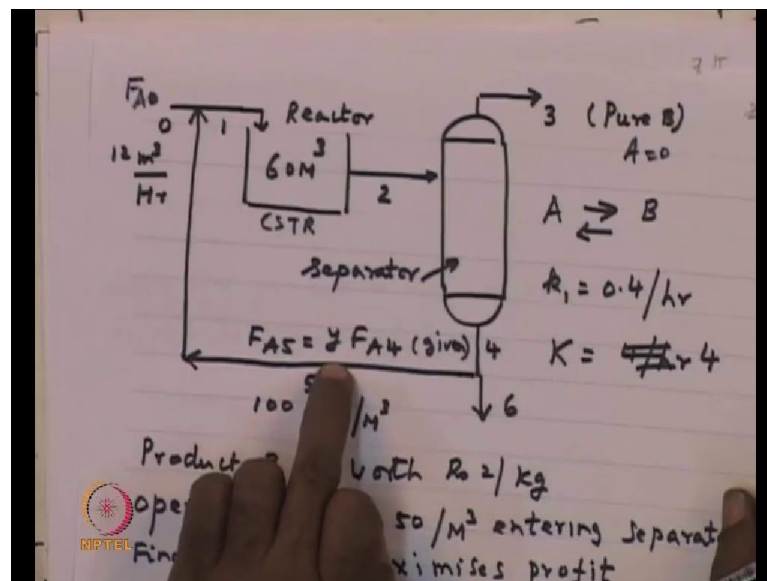 FA0
0
1
12 m³
Hr
Reactor
60 M³
CSTR
2
3 (Pure B)
A=0
A ⇌ B
separator
k1 = 0.4/hr
FA5 = y FA4 (given) 4
K = 4
100 /M³
6
Product worth Rs 2/kg
50/M³ entering
ximises profit
NPTEL